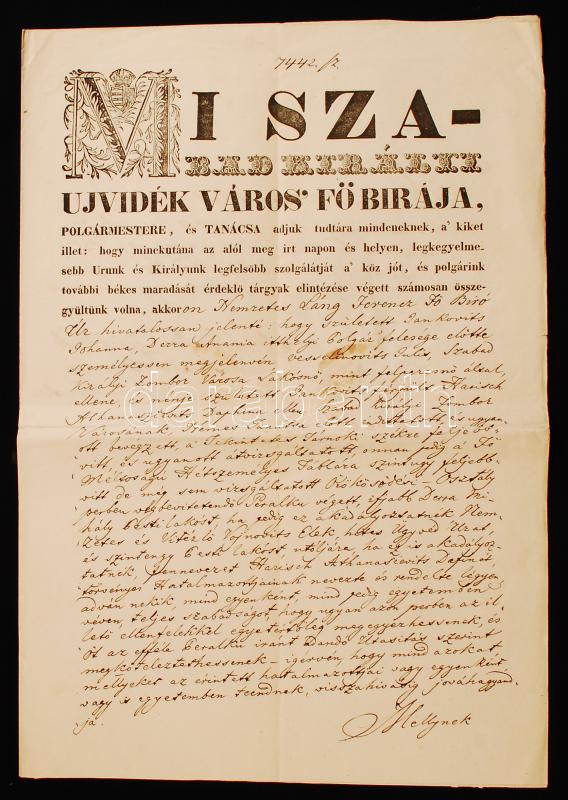 7442. /z.
MI SZA-
BAD KIRÁLYI
UJVIDÉK VÁROS' FŐ BIRÁJA,
POLGÁRMESTERE, és TANÁCSA adjuk tudtára mindeneknek, a' kiket
illet: hogy minekutána az alól meg irt napon és helyen, legkegyelme-
sebb Urunk és Királyunk legfelsőbb szolgálatját a' köz jót, és polgárink
további békes maradását érdeklő tárgyak elintézése végett számosan össze-
gyültünk volna, akkoron Nemzetes Láng Ferencz Fő Biró
Úr hivatalossan jelenti: hogy született Jankovits
Johanna, Derra itthelyi Polgár felesége előtte
személyessen megjelenvén Julis, Szabad
Királyi Zombor Városa Lakósnő, mint felperesnő által,
ellene és született Jankovits Hariseh
Szabad Király Zombor
Városának előtt és ugyan-
ott bevégzett, a Tekintetes Tárnoki Székre feljebb
vitt, és ugyanott átvizsgáltatott, onnan pedig a' Fő
Méltoságú Hétszemélyes Táblára szintúgy feljebb
vitt de még sem vizsgáltatott Örökösödési Osztály
perben végbevitetendő Peralku végett, ifjabb Derra Mi-
hály Pesti lakóst, ha pedig ez akadályoztatnék Nem-
zetes és Vitézlő Vojnovits Elek, hites Ügyvéd Urat,
és szintengy Pesti lakóst utóljára, ha ez is akadályoz-
tatnék, Harisch Athanaszievits
törvényes Hatalmazottjainak nevezte és rendelte légyen,
adván nekik, mind egyenként, mind pedig egyetemben
vévén, teljes szabadságot, hogy ugyan azon perben az il-
lető ellenfelekkel egyetértőleg megegyezhessenek, és
őt az efféle Peralku iránt Dandó Utasitás szerint
megkötelezhessenek – igérvén, hogy mind azokat,
mellyeket az érintett hatalmazottjai vagy egyenként
vagy is egyetemben teendnek, visszahivásig jóváhagyand-
ja.
Mellynek
darabanth